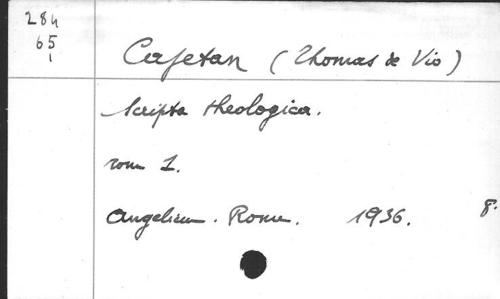 284
65
1
Cajetan (Thomas de Vio)
Scripta theologica.
tom 1.
Angelicum. Rome. 1936. 8.